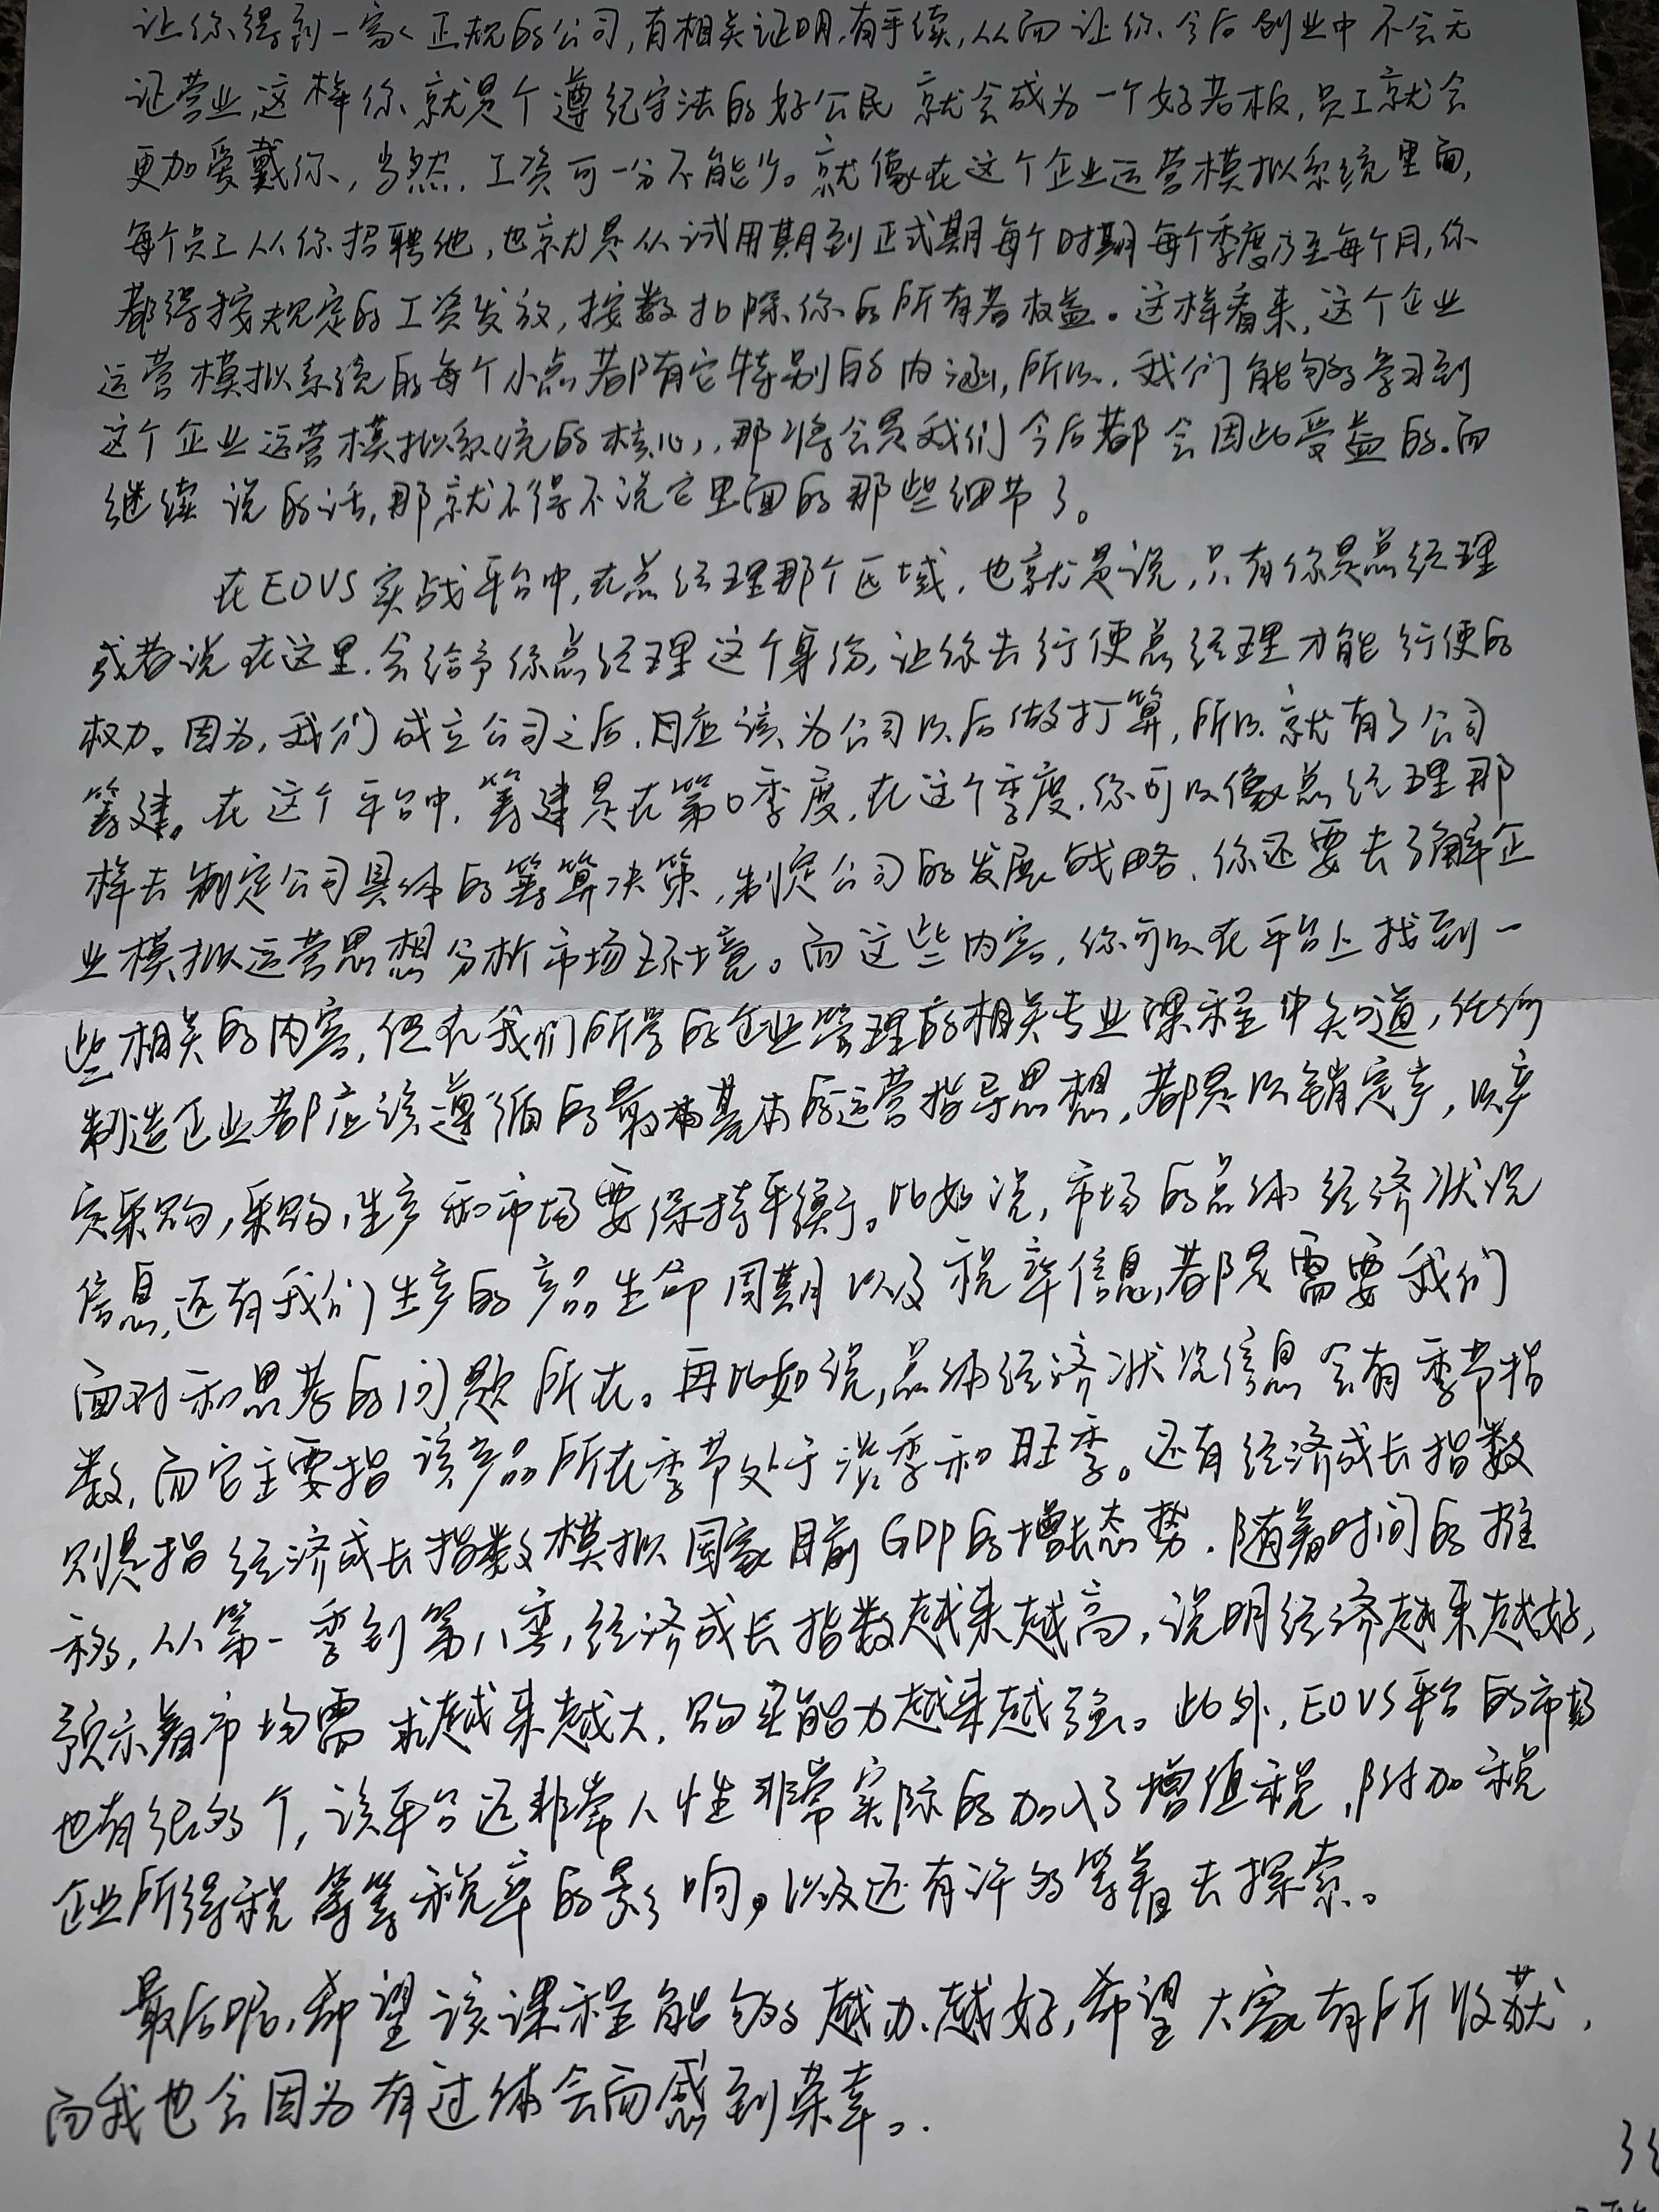 让你得到一家正规的公司,有相关证明,有手续,从而让你今后创业中不会无
证营业,这样你就是个遵纪守法的好公民 就会成为一个好老板,员工就会
更加爱戴你,当然,工资可一分不能少。就像在这个企业运营模拟系统里面,
每个员工从你招聘他,也就是从试用期到正式期每个时期每个季度乃至每个月,你
都得按规定的工资发放,按数扣除你的所有者权益。这样看来,这个企业
运营模拟系统的每个小点都有它特别的内涵,所以,我们能够学习到
这个企业运营模拟系统的核心,那将会是我们今后都会因此受益的.而
继续说的话,那就不得不说它里面的那些细节了。
在EOVS实战平台中,在总经理那个区域,也就是说,只有你是总经理
或者说在这里.会给予你总经理这个身份,让你去行使总经理才能行使的
权力。因为,我们成立公司之后,因应该为公司以后做打算,所以就有了公司
筹建。在这个平台中,筹建是在第0季度,在这个季度,你可以像总经理那
样去制定公司具体的筹算决策,制定公司的发展战略,你还要去了解企
业模拟运营思想分析市场环境。而这些内容,你可以在平台上找到一
些相关的内容,但在我们所学的企业管理的相关专业课程中知道,任何
制造企业都应该遵循的最基本的运营指导思想,都是以销定产,以产
定采购,采购,生产和市场要保持平衡。比如说,市场的总体经济状况
信息,还有我们生产的产品生命周期以及税率信息,都是需要我们
面对和思考的问题所在。再比如说,总体经济状况信息会有季节指
数,而它主要指该产品所在季节处于淡季和旺季。还有经济成长指数
则是指经济成长指数模拟国家目前GDP的增长态势.随着时间的推
移,从第一季到第八季,经济成长指数越来越高,说明经济越来越好,
预示着市场需求越来越大,购买能力越来越强。此外,EOVS平台的市场
也有很多个,该平台还非常人性非常实际的加入了增值税,附加税
企业所得税等等税率的影响,以及还有许多等着去探索。
最后呢,希望该课程能够越办越好,希望大家有所收获,
而我也会因为有过体会而感到荣幸。.